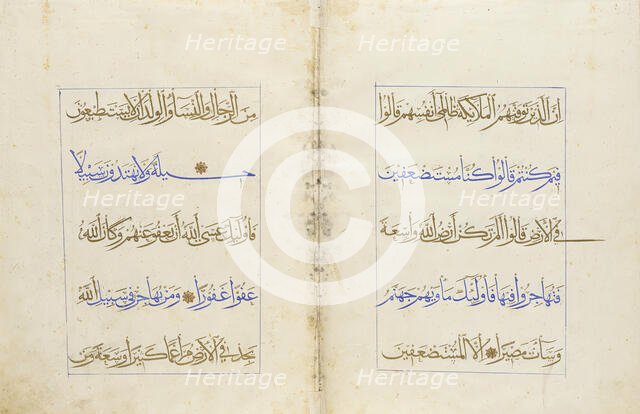 ان الذين توفيهم الملائكة ظالمي أنفسهم قالوا
فيم كنتم قالوا كنا مستضعفين
في الأرض قالوا ألم تكن أرض الله واسعة
فتهاجروا فيها فأولئك مأويهم جهنم
وساءت مصيرا إلا المستضعفين
من الرجال والنساء والولدان لا يستطيعون
حيلة ولا يهتدون سبيلا
فأولئك عسى الله أن يعفو عنهم وكان الله
عفوا غفورا ومن يهاجر في سبيل الله
يجد في الأرض مراغما كثيرا وسعة ومن
Heritage
Heritage
Heritage
Heritage
Heritage
Heritage
Heritage
Heritage
Heritage
Heritage
©